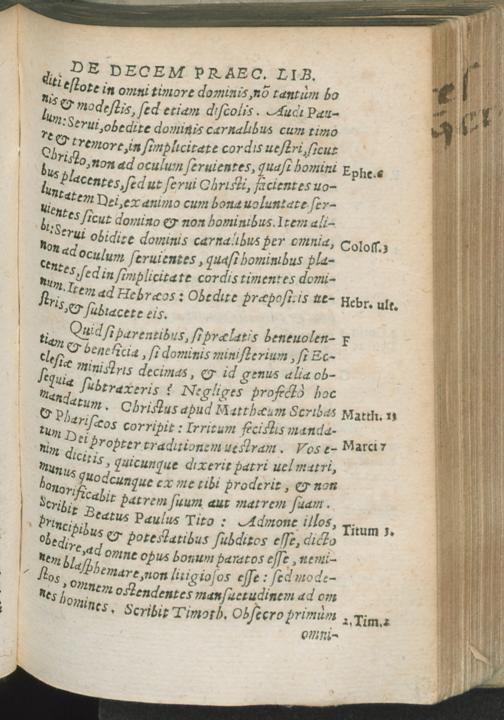 DE DECEM PRAEC. LIB.
diti estote in omni timore dominis, nō tantùm bo
nis & modestis, sed etiam discolis. Audi Pau-
lum: Serui, obedite dominis carnalibus cum timo
re & tremore, in simplicitate cordis uestri, sicut
Christo, non ad oculum seruientes, quasi homini Ephe.6
bus placentes, sed ut serui Christi, facientes uo-
luntatem Dei, ex animo cum bona uoluntate ser-
uientes sicut domino & non hominibus. Item ali-
bi: Serui obidite dominis carnalibus per omnia, Coloss.3
non ad oculum seruientes, quasi hominibus pla-
centes, sed in simplicitate cordis timentes domi-
num. Item ad Hebræos: Obedite præpositis ue- Hebr. ult.
stris, & subiacete eis.
Quid si parentibus, si prælatis beneuolen- F
tiam & beneficia, si dominis ministerium, si Ec-
clesiæ ministris decimas, & id genus alia ob-
sequia subtraxeris? Negliges profectò hoc
mandatum. Christus apud Matthæum Scribas Matth. 15
& Pharisæos corripit: Irritum fecistis manda-
tum Dei propter traditionem uestram. Vos e- Marci 7
nim dicitis, quicunque dixerit patri uel matri,
munus quodcunque ex me tibi proderit, & non
honorificabit patrem suum aut matrem suam.
Scribit Beatus Paulus Tito: Admone illos,
principibus & potestatibus subditos esse, dicto Titum 3.
obedire, ad omne opus bonum paratos esse, nemi-
nem blasphemare, non litigiosos esse: sed mode-
stos, omnem ostendentes mansuetudinem ad om
nes homines. Scribit Timoth. Obsecro primùm 1. Tim. 2
omni-